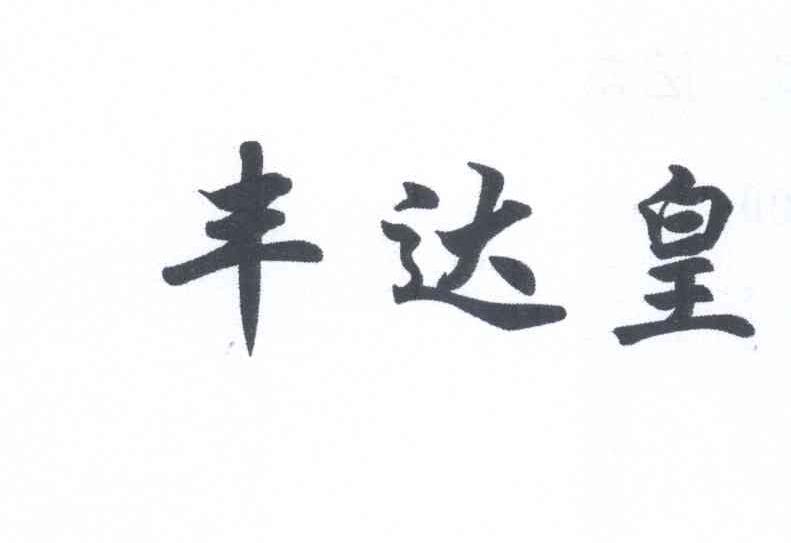 丰达皇